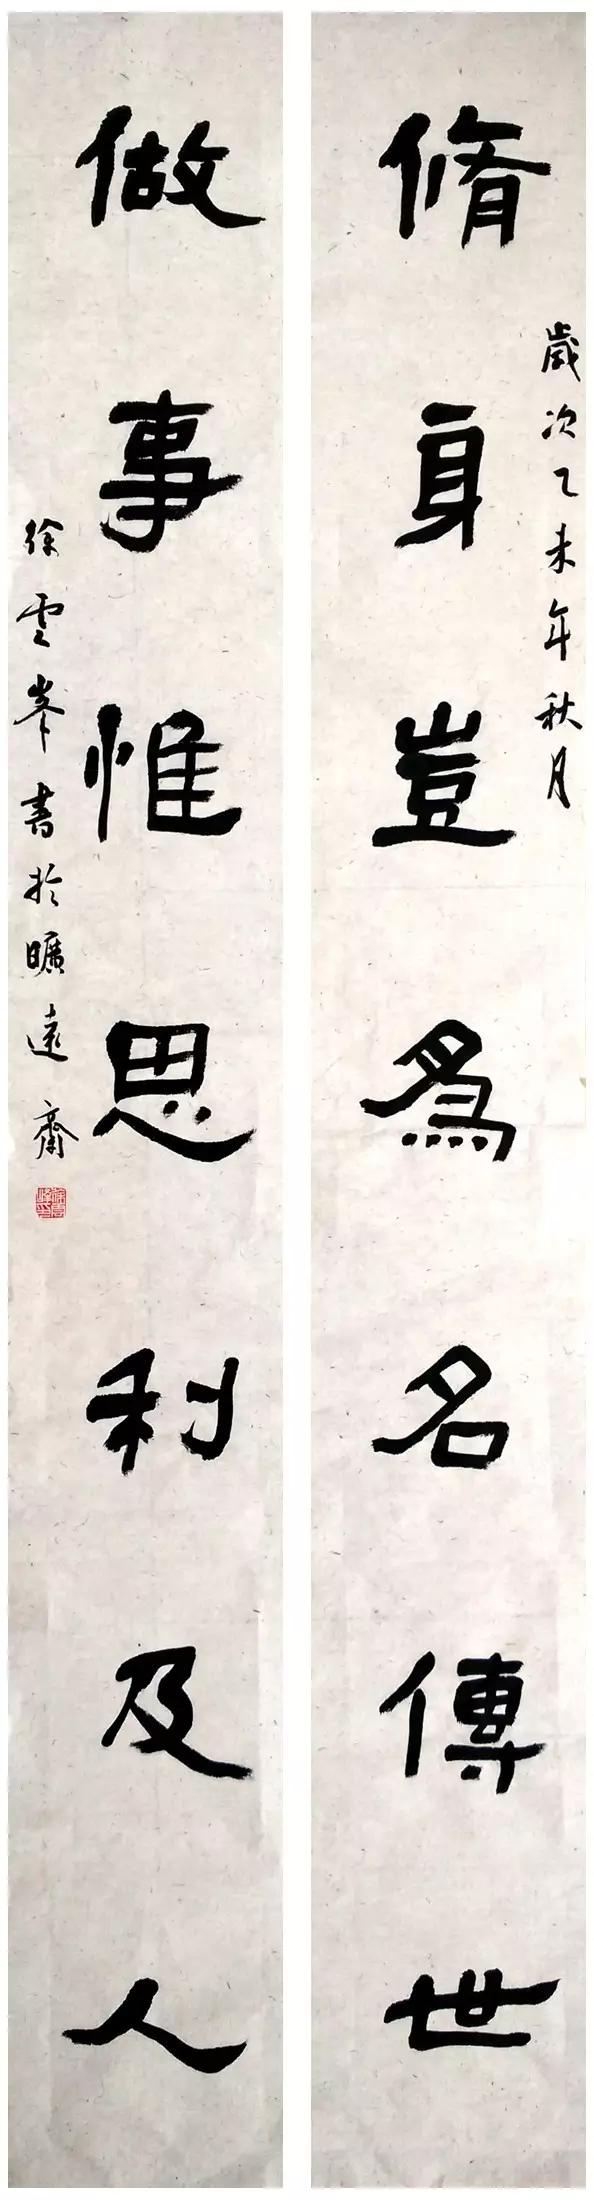 歲次乙未年秋月
脩身豈為名傳世
做事惟思利及人
徐雲峯書於曠遠齋